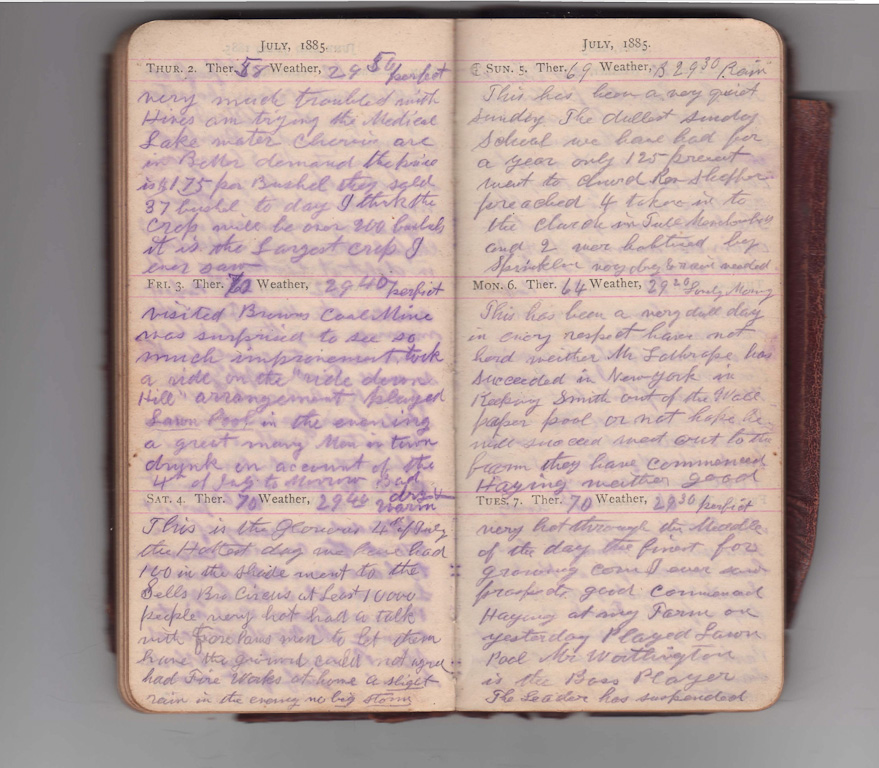 JULY, 1885.
THUR. 2. Ther. 58 Weather, 29 50 perfect
very much troubled with
Hives am trying the Medical
Lake water Cherris are
in Better demand the price
is $1 75 per Bushel they sold
37 bushel to day I think the
Crop will be over 200 bushels
it is the Largest crop I
ever saw
FRI. 3. Ther. 72 Weather, 29 40 perfect
visited Browns Coal Mine
was surprised to see so
much improvement took
a ride on the "ride down
Hill" arrangement played
Lawn Pool in the evening
a great many Men in town
drunk on account of the
4th of July to Morrow Bad
SAT. 4. Ther. 70 Weather, 29 40 dry & warm
This is the Glorious 4th of July
the Hottest day we have had
100 in the Shade went to the
Sells Bro Circus at Least 10000
people very hot had a talk
with Forepaws men to let them
have the ground could not agree
had Fire Works at home a slight
rain in the evening no big storm
JULY, 1885.
SUN. 5. Ther. 69 Weather, B 29 30 Rain
This has been a very quiet
Sunday The dullest Sunday
School we have had for
a year only 125 present
went to church Rev
preached 4 taken in to
the church in Full Membership
and 2 wer babtised by
Sprinklin very dry & rain needed
MON. 6. Ther. 64 Weather, 29 20
This has been a very dull day
in every respect have not
herd weither Mr Lothrope has
Succeeded in New York in
Keeping Smith out of the Wall
paper pool or not hope he
will succeed went out to the
farm they have commenced
Haying weither good
TUES. 7. Ther. 70 Weather, 29 30 perfict
very hot through the Middle
of the day the finest for
growing corn I ever saw
prospects good commenced
Haying at my Farm on
yesterday Played Lawn
Pool Mr Worthington
is the Boss Player
The Leader has suspended